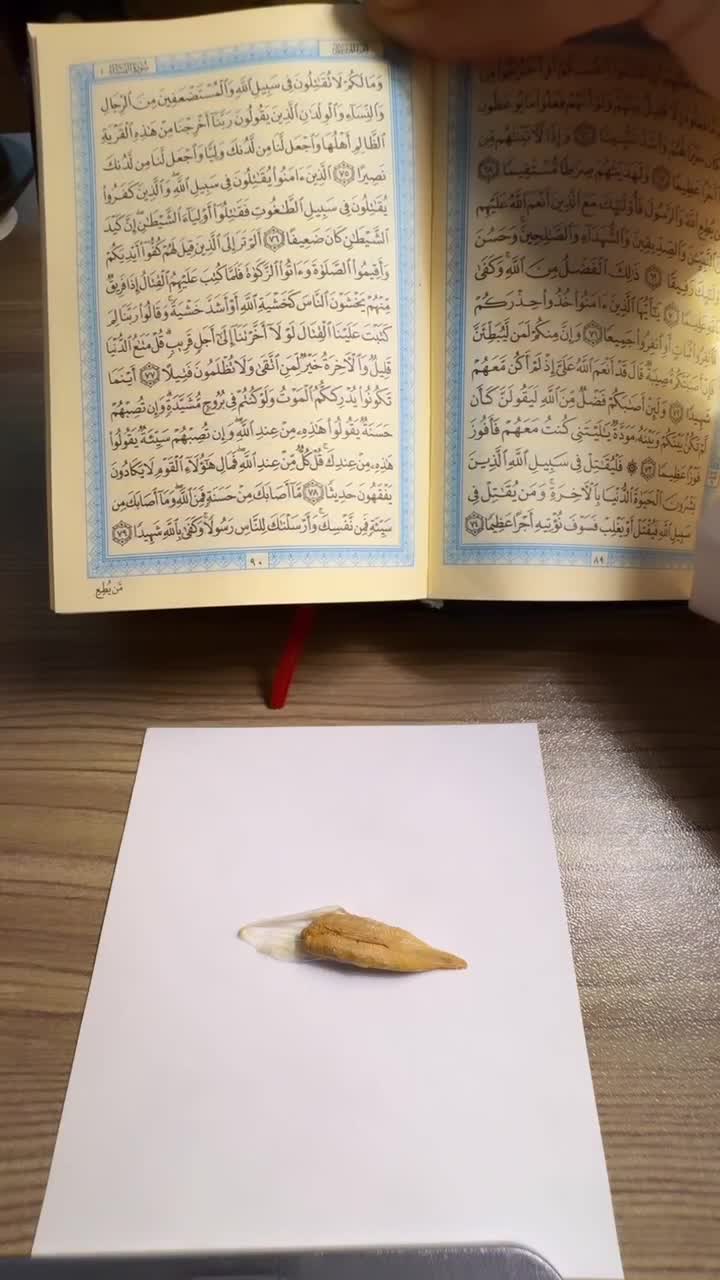 وَإِذًا لَّأَتَيْنَٰهُم مِّن
أَجْرًا عَظِيمًا ٦٧ وَلَهَدَيْنَٰهُمْ صِرَٰطًا مُّسْتَقِيمًا ٦٨
يُطِعِ ٱللَّهَ وَٱلرَّسُولَ فَأُو۟لَٰٓئِكَ مَعَ ٱلَّذِينَ أَنْعَمَ ٱللَّهُ عَلَيْهِم
ٱلنَّبِيِّـۧنَ وَٱلصِّدِّيقِينَ وَٱلشُّهَدَآءِ وَٱلصَّٰلِحِينَ ۚ وَحَسُنَ
رَفِيقًا ٦٩ ذَٰلِكَ ٱلْفَضْلُ مِنَ ٱللَّهِ ۚ وَكَفَىٰ
عَلِيمًا ٧٠ يَٰٓأَيُّهَا ٱلَّذِينَ ءَامَنُوا۟ خُذُوا۟ حِذْرَكُمْ
فَٱنفِرُوا۟ ثُبَاتٍ أَوِ ٱنفِرُوا۟ جَمِيعًا ٧١ وَإِنَّ مِنكُمْ لَمَن لَّيُبَطِّئَنَّ
فَإِنْ أَصَٰبَتْكُم مُّصِيبَةٌ قَالَ قَدْ أَنْعَمَ ٱللَّهُ عَلَىَّ إِذْ لَمْ أَكُن مَّعَهُمْ
شَهِيدًا ٧٢ وَلَئِنْ أَصَٰبَكُمْ فَضْلٌ مِّنَ ٱللَّهِ لَيَقُولَنَّ كَأَن
لَّمْ تَكُنۢ بَيْنَكُمْ وَبَيْنَهُۥ مَوَدَّةٌ يَٰلَيْتَنِى كُنتُ مَعَهُمْ فَأَفُوزَ
فَوْزًا عَظِيمًا ٧٣ ۞ فَلْيُقَٰتِلْ فِى سَبِيلِ ٱللَّهِ ٱلَّذِينَ
يَشْرُونَ ٱلْحَيَوٰةَ ٱلدُّنْيَا بِٱلْءَاخِرَةِ ۚ وَمَن يُقَٰتِلْ فِى
سَبِيلِ ٱللَّهِ فَيُقْتَلْ أَوْ يَغْلِبْ فَسَوْفَ نُؤْتِيهِ أَجْرًا عَظِيمًا ٧٤
٨٩
سُورَةُ النِّسَاءِ ٤
وَمَا لَكُمْ لَا تُقَٰتِلُونَ فِى سَبِيلِ ٱللَّهِ وَٱلْمُسْتَضْعَفِينَ مِنَ ٱلرِّجَالِ
وَٱلنِّسَآءِ وَٱلْوِلْدَٰنِ ٱلَّذِينَ يَقُولُونَ رَبَّنَآ أَخْرِجْنَا مِنْ هَٰذِهِ ٱلْقَرْيَةِ
ٱلظَّالِمِ أَهْلُهَا وَٱجْعَل لَّنَا مِن لَّدُنكَ وَلِيًّا وَٱجْعَل لَّنَا مِن لَّدُنكَ
نَصِيرًا ٧٥ ٱلَّذِينَ ءَامَنُوا۟ يُقَٰتِلُونَ فِى سَبِيلِ ٱللَّهِ ۖ وَٱلَّذِينَ كَفَرُوا۟
يُقَٰتِلُونَ فِى سَبِيلِ ٱلطَّٰغُوتِ فَقَٰتِلُوٓا۟ أَوْلِيَآءَ ٱلشَّيْطَٰنِ ۖ إِنَّ كَيْدَ
ٱلشَّيْطَٰنِ كَانَ ضَعِيفًا ٧٦ أَلَمْ تَرَ إِلَى ٱلَّذِينَ قِيلَ لَهُمْ كُفُّوٓا۟ أَيْدِيَكُمْ
وَأَقِيمُوا۟ ٱلصَّلَوٰةَ وَءَاتُوا۟ ٱلزَّكَوٰةَ فَلَمَّا كُتِبَ عَلَيْهِمُ ٱلْقِتَالُ إِذَا فَرِيقٌ
مِّنْهُمْ يَخْشَوْنَ ٱلنَّاسَ كَخَشْيَةِ ٱللَّهِ أَوْ أَشَدَّ خَشْيَةً ۚ وَقَالُوا۟ رَبَّنَا لِمَ
كَتَبْتَ عَلَيْنَا ٱلْقِتَالَ لَوْلَآ أَخَّرْتَنَآ إِلَىٰٓ أَجَلٍ قَرِيبٍ ۗ قُلْ مَتَٰعُ ٱلدُّنْيَا
قَلِيلٌ وَٱلْءَاخِرَةُ خَيْرٌ لِّمَنِ ٱتَّقَىٰ وَلَا تُظْلَمُونَ فَتِيلًا ٧٧ أَيْنَمَا
تَكُونُوا۟ يُدْرِككُّمُ ٱلْمَوْتُ وَلَوْ كُنتُمْ فِى بُرُوجٍ مُّشَيَّدَةٍ ۗ وَإِن تُصِبْهُمْ
حَسَنَةٌ يَقُولُوا۟ هَٰذِهِۦ مِنْ عِندِ ٱللَّهِ ۖ وَإِن تُصِبْهُمْ سَيِّئَةٌ يَقُولُوا۟
هَٰذِهِۦ مِنْ عِندِكَ ۚ قُلْ كُلٌّ مِّنْ عِندِ ٱللَّهِ ۖ فَمَالِ هَٰٓؤُلَآءِ ٱلْقَوْمِ لَا يَكَادُونَ
يَفْقَهُونَ حَدِيثًا ٧٨ مَّآ أَصَابَكَ مِنْ حَسَنَةٍ فَمِنَ ٱللَّهِ ۖ وَمَآ أَصَابَكَ مِن
سَيِّئَةٍ فَمِن نَّفْسِكَ ۚ وَأَرْسَلْنَٰكَ لِلنَّاسِ رَسُولًا ۚ وَكَفَىٰ بِٱللَّهِ شَهِيدًا ٧٩
٩٠
مَّن يُطِعِ